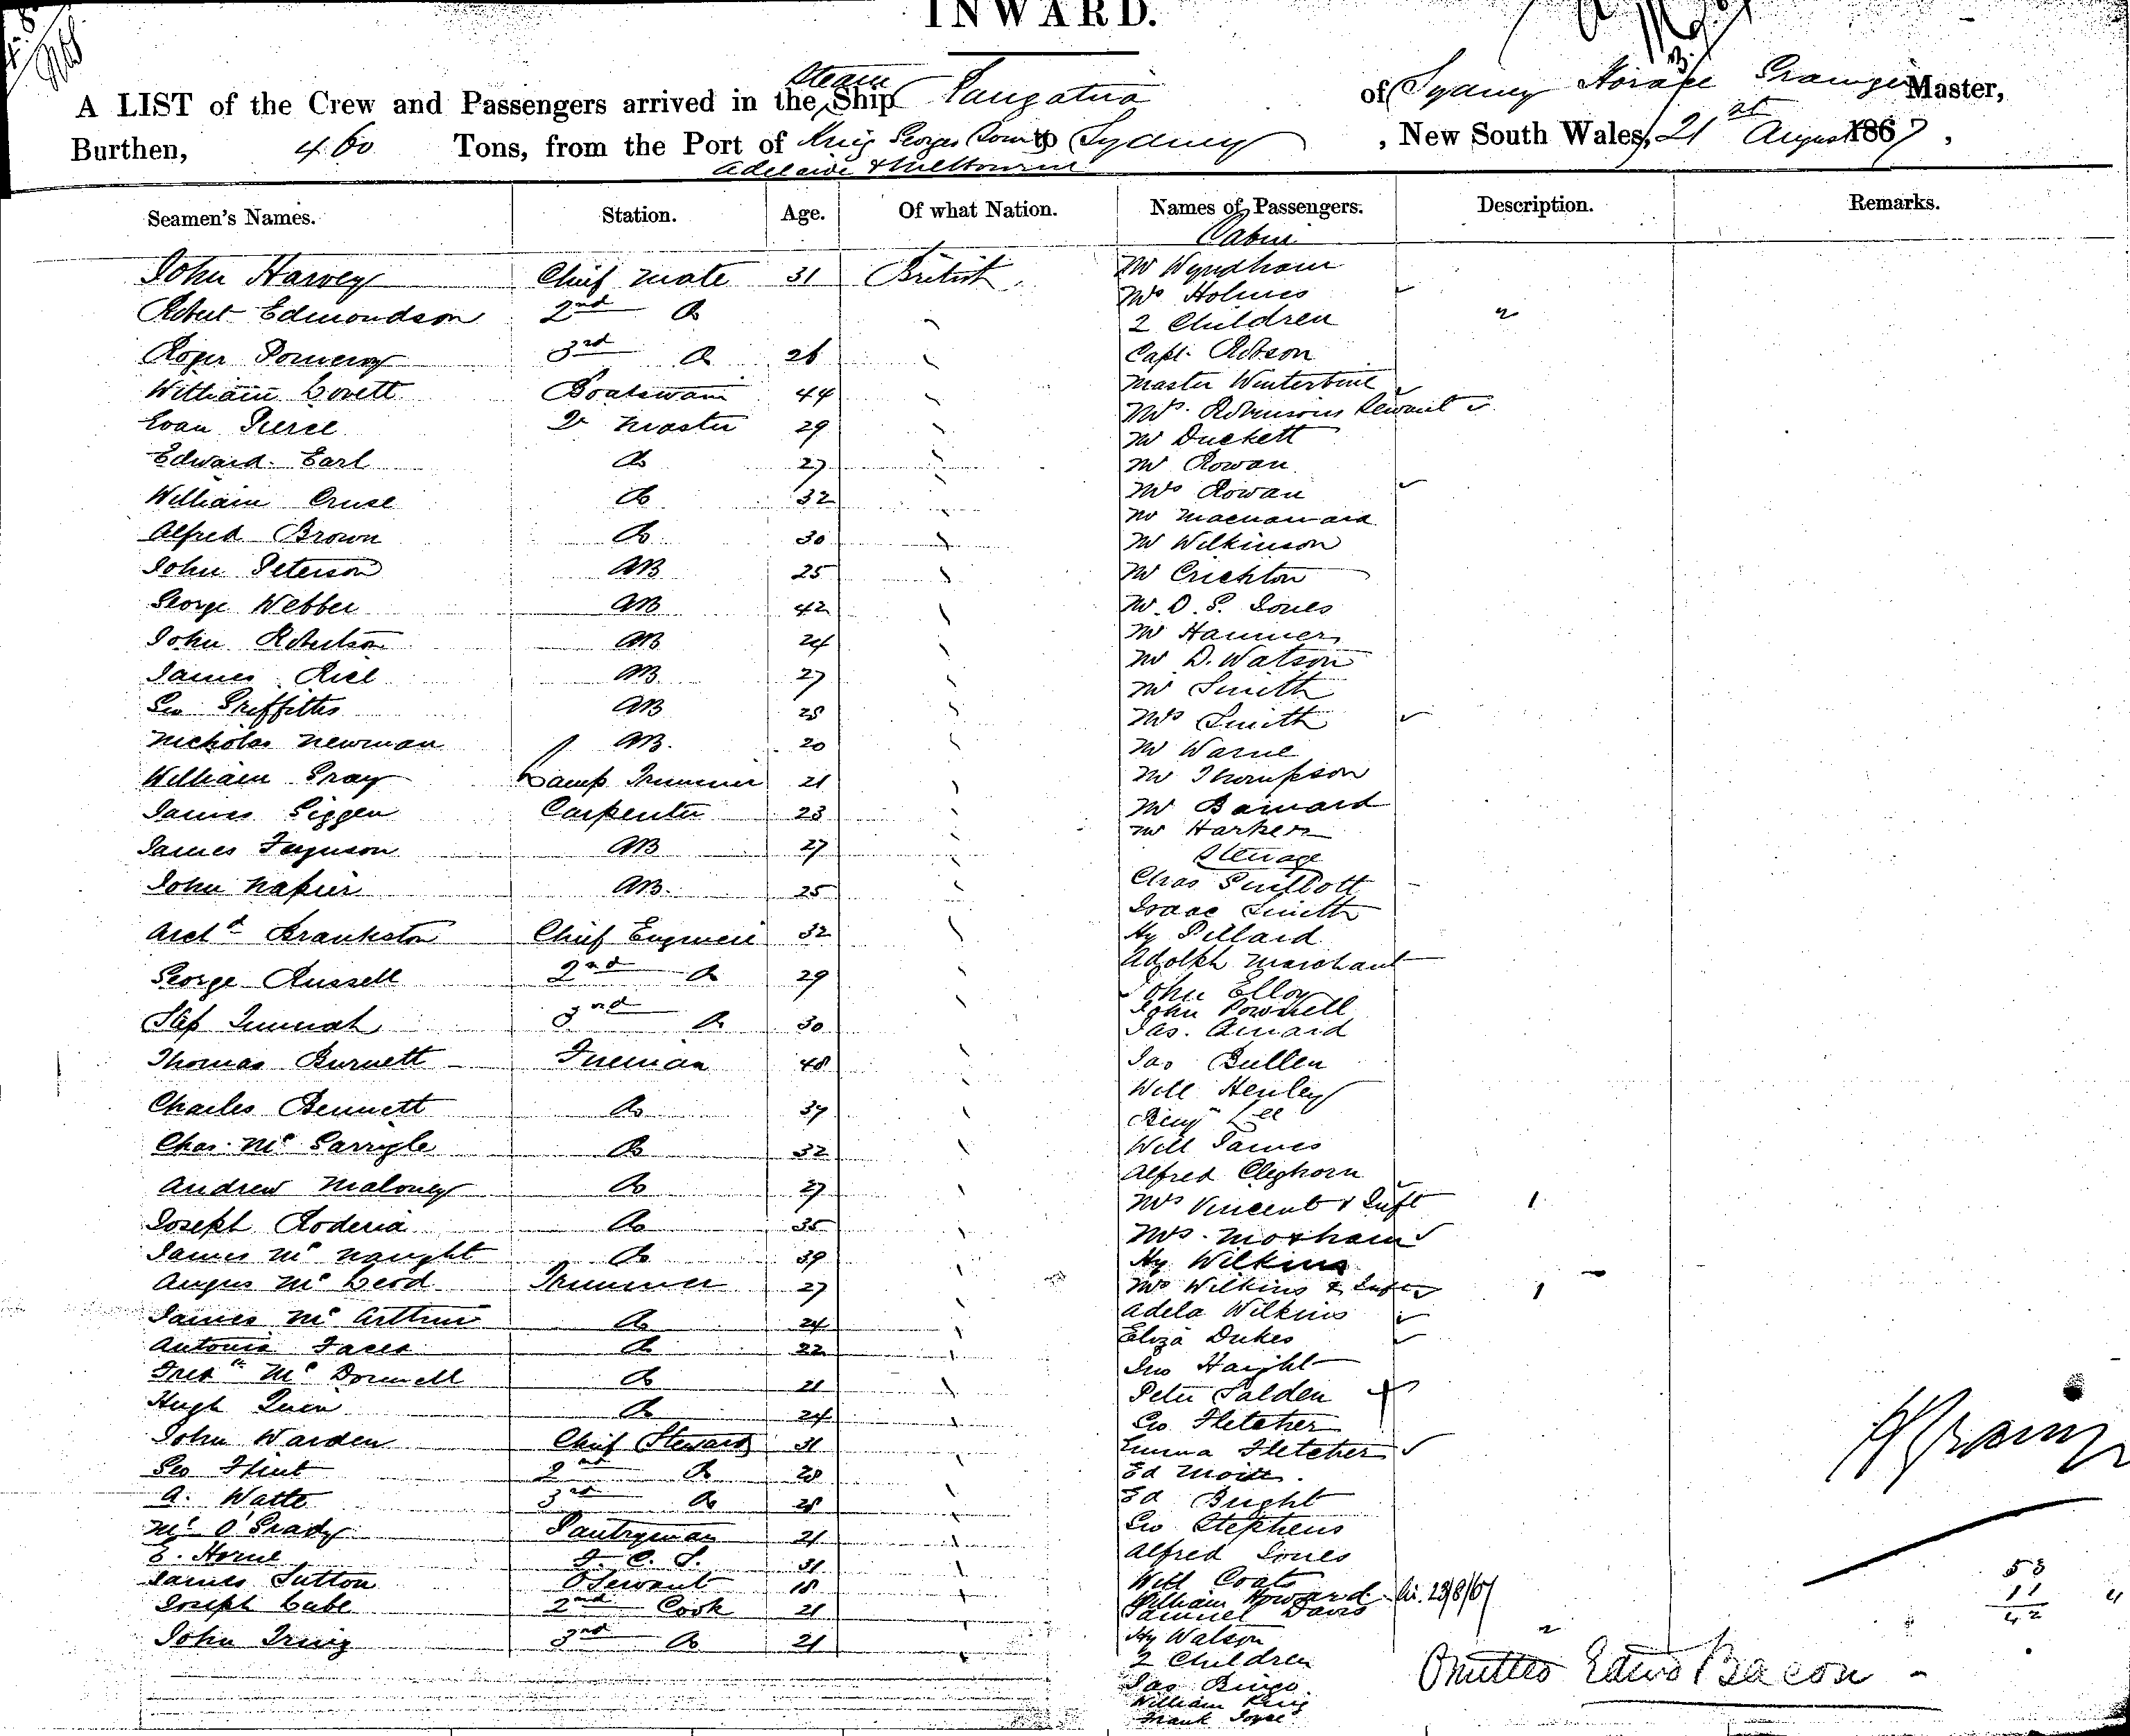 INWARD.
A LIST of the Crew and Passengers arrived in the Steam Ship of Sydney Horace Master,
Burthen, 460 Tons, from the Port of King Georges Sound to Sydney, New South Wales, 21st August 1867,
Adelaide & Melbourne
Seamen's Names. Station. Age. Of what Nation. Names of Passengers. Description. Remarks.
Cabin
John Harvey Chief Mate 31 British Mr Wyndham
Mrs Holmes
Robert Edmondson 2nd Do 2 Children
Roger Pomeroy 3rd Do 26 Capt. Robson
William Lovett Boatswain 44 Master
Evan Pierce Qr Master 29 Mrs. Robinsons Servant
Mr Duckett
Edward Earl Do 27 Mr Rowan
William Cruse Do 32 Mrs Rowan
Mr
Alfred Brown Do 30 Mr Wilkinson
John Peterson AB 25 Mr Crichton
George Webber AB 42 Mr. O. S. Jones
John Robertson AB 24 Mr Hanmer
James Rice AB 27 Mr D. Watson
Geo Griffiths AB 28 Mr Smith
Mrs Smith
Nicholas Newman AB. 20 Mr Warne
William Gray Lamp Trimmer 21 Mr Thompson
James Siggen Carpenter 23 Mr Barnard
Mr Harker
James Ferguson AB 27 Steerage
John Napier AB. 25 Chas
Isaac Smith
Archd Brankston Chief Engineer 32 Hy Pillard
Adolph Marchant
George Russell 2nd Do 29 John Elloy
John Pownell
3rd Do 30 Jas.
Thomas Burnett Fireman 48 Jas Bullen
Will Henley
Charles Bennett Do 37 Benjn Lee
Chas. Mc Garrigle Do 32 Will James
Alfred Cleghorn
Andrew Maloney Do 27 Mrs Vincent & Inft 1
Joseph Roderia Do 35 Mrs. Moxham
James Mc Naught Do 39 Hy Wilkins
Angus Mc Leod Trimmer 27 Mrs Wilkins & Inft 1
James Mc Arthur Do 24 Adela Wilkins
Antonia Do 22 Eliza Dukes
Fredk Mc Donnell Do 21 Jno Haight
Hugh Quin Do 24 Peter Salden
Geo Fletcher
John Warden Chief Steward 31 Emma Fletcher
Geo Flint 2nd Do 28 Ed
A. Watts 3rd Do 28 Ed Bright
Ml O'Grady Pantryman 21 Geo Stephens
E. Horne F. C. S. 31 Alfred Jones
James Sutton Servant 18 Will Coats
William Howard 23/8/67
Joseph Cube 2nd Cook 21 Samuel Davis
John Irwig 3rd Do 21 Hy Watson
2 Children
Jas Bingo
William King
Frank Joyce
53
11
42
Omitted Edwd Bacon